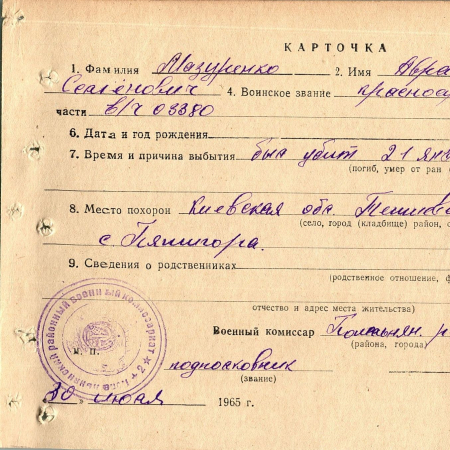 КАРТОЧКА
1. Фамилия Мазуренко 2. Имя Авра
Семёнович 4. Воинское звание красноар
части в/ч 03380
6. Дата и год рождения
7. Время и причина выбытия был убит 21 янв
(погиб, умер от ран
8. Место похорон Киевская обл.
(село, город (кладбище) район, о
с. Пятигора.
9. Сведения о родственниках
(родственное отношение, ф
отчество и адрес места жительства)
Военный комиссар
(района, города)
М. П.
районный военный комиссариат
подполковник
(звание)
30 июля 1965 г.